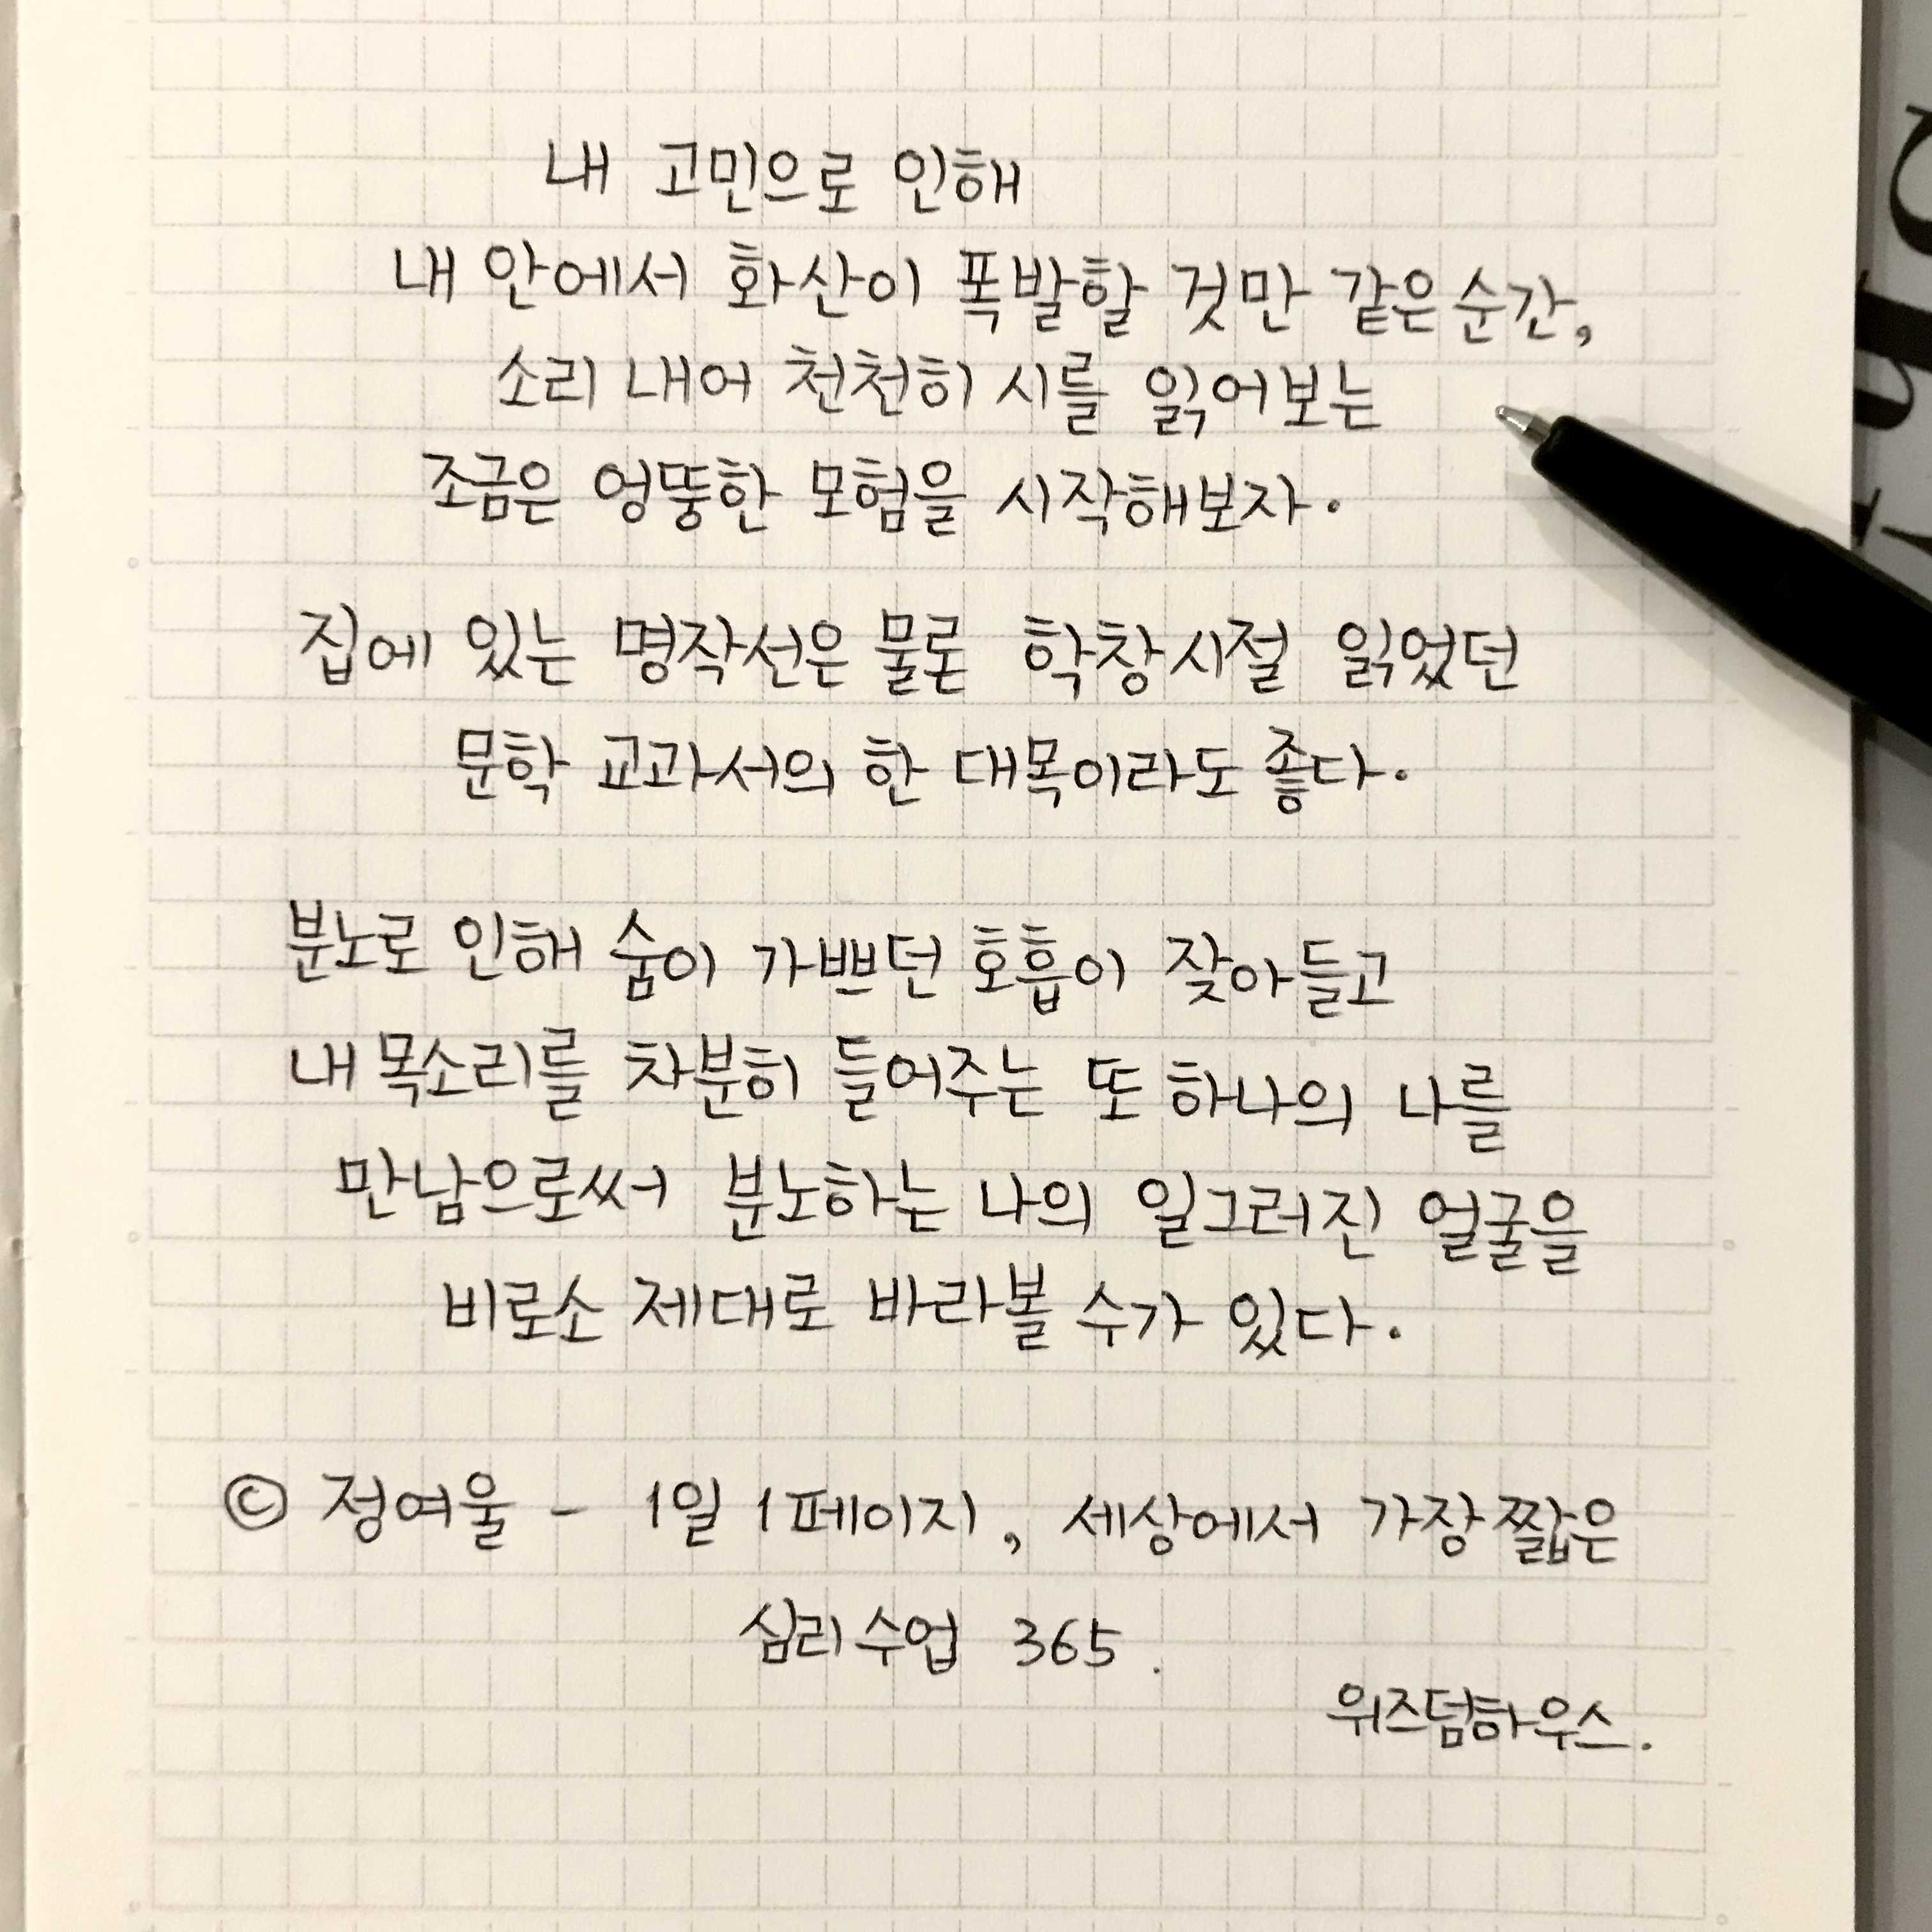 내 고민으로 인해
내 안에서 화산이 폭발할 것만 같은 순간,
소리 내어 천천히 시를 읽어보는
조금은 엉뚱한 모험을 시작해보자.
집에 있는 명작선은 물론 학창시절 읽었던
문학 교과서의 한 대목이라도 좋다.
분노로 인해 숨이 가쁘던 호흡이 잦아들고
내 목소리를 차분히 들어주는 또 하나의 나를
만남으로써 분노하는 나의 일그러진 얼굴을
비로소 제대로 바라볼 수가 있다.
© 정여울 - 1일 1페이지, 세상에서 가장 짧은
심리수업 365.
위즈덤하우스.